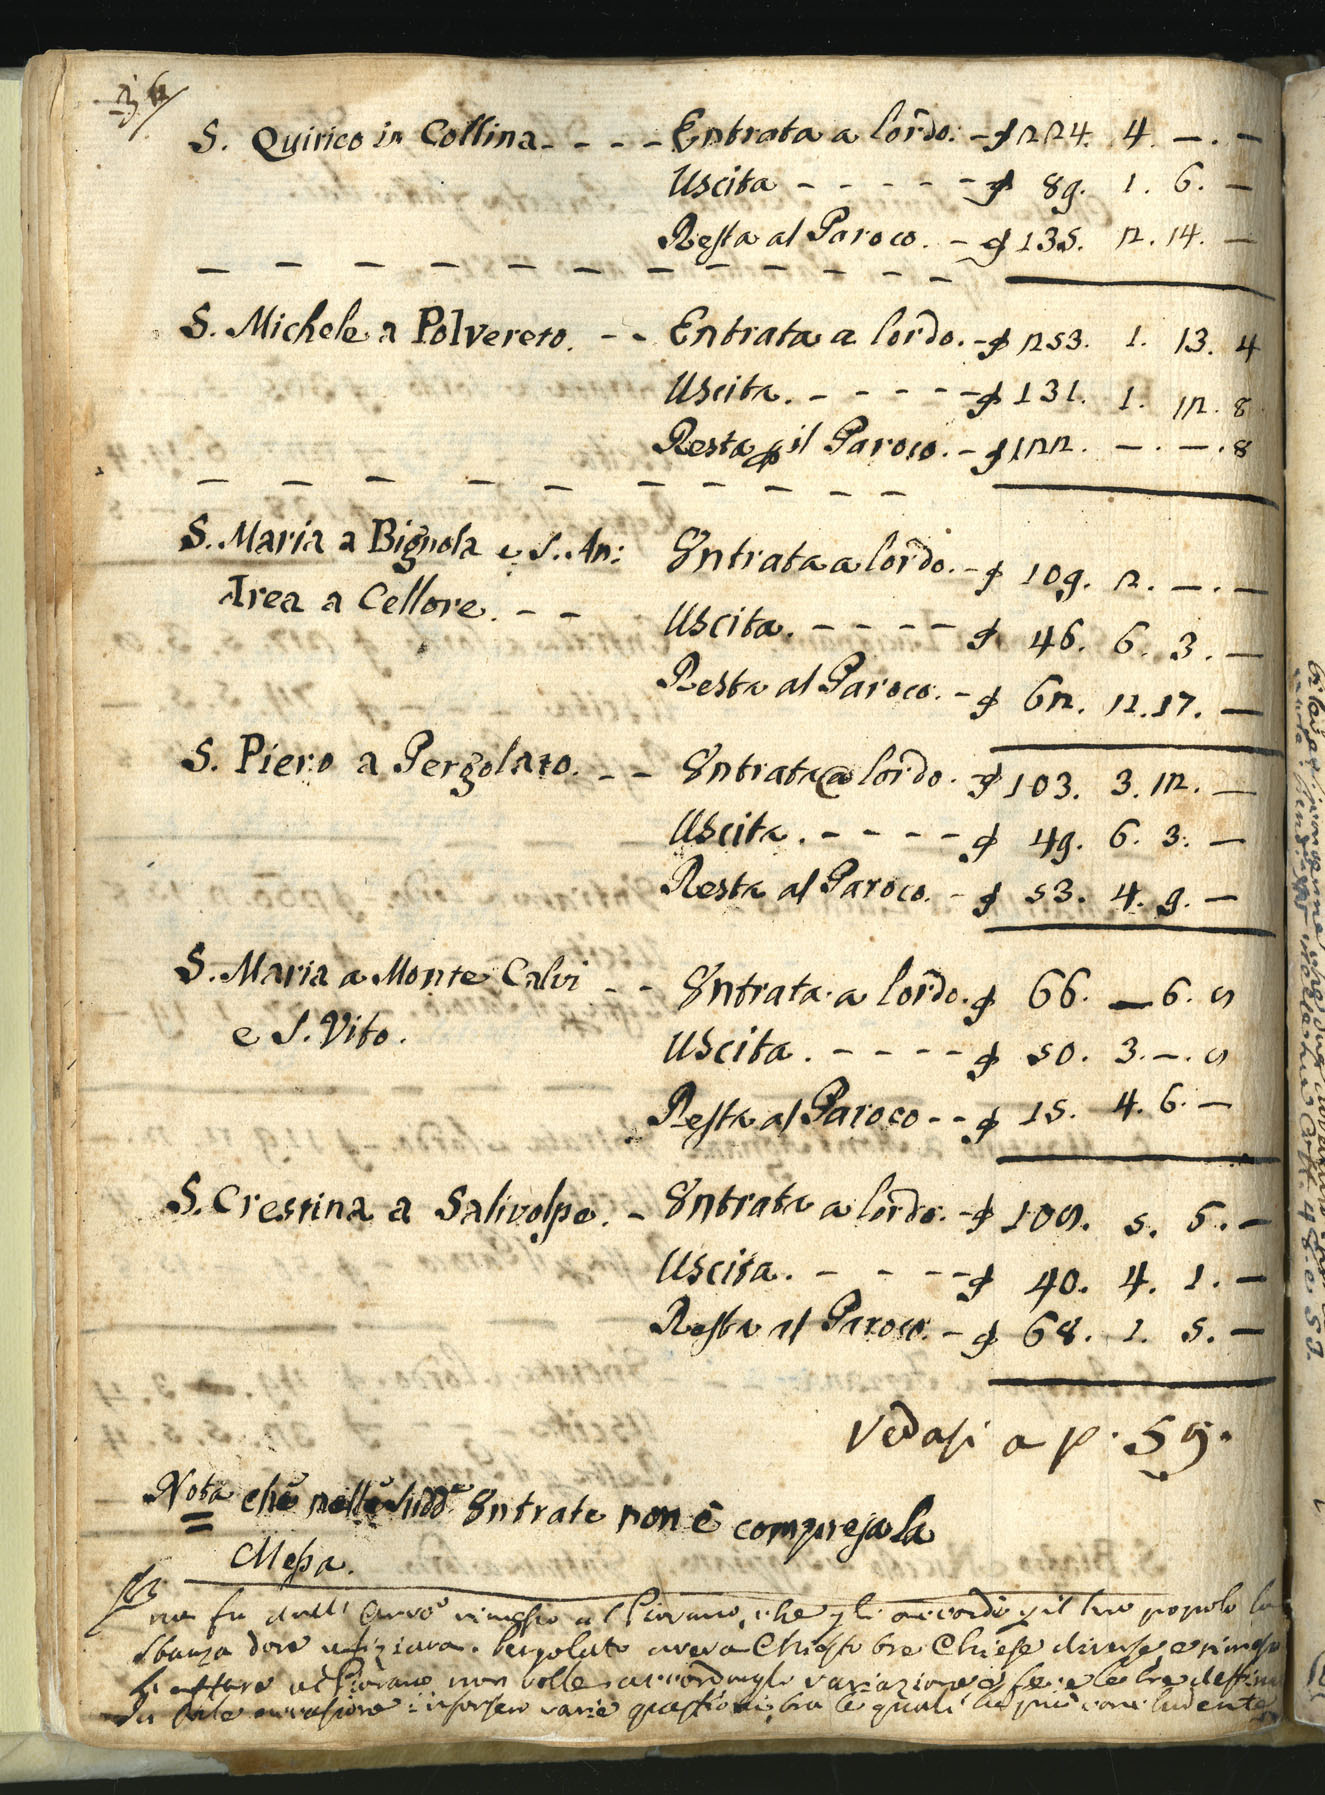 36
S. Quirico in Collina - - - - Entrata a lordo. - £ 224. 4. —. —
Uscita - - - - - - £ 89. 1. 6. —
Resta al Paroco. - £ 135. 2. 14. —
S. Michele a Polvereto. - - Entrata a lordo. - £ 253. 1. 13. 4
Uscita. - - - - - £ 131. 1. 12. 8
Resta p il Paroco. - £ 122. —. —. 8
S. Maria a Bignola e S. An: Entrata a lordo. - £ 109. 2. —. —
drea a Cellore. - - Uscita. - - - - - £ 46. 6. 3. —
Resta al Paroco. - £ 62. 2. 17. —
S. Piero a Pergolato. - - Entrata a lordo. - £ 103. 3. 12. —
Uscita. - - - - - £ 49. 6. 3. —
Resta al Paroco. - £ 53. 4. 9. —
S. Maria a Monte Calvi - - Entrata a lordo. £ 66. — 6. 8
e S. Vito. Uscita. - - - - - £ 50. 3. —. 8
Resta al Paroco - - £ 15. 4. 6. —
S. Crestina a Salivolpe. - Entrata a lordo. - £ 108. 5. 6. —
Uscita. - - - - £ 40. 4. 1. —
Resta al Paroco. - £ 68. 1. 5. —
Vedasi a p. 59.
Nota che nelle sudd.e Entrate non è compresa la
Messa.
ne fu dall' rimesso al Piovano, che gli accordò p il suo popolo la
stanza dove ufiziava. Pergolato aveva Chiesto tre Chiese diverse, e rimesso
al Piovano non volle accordargli variazione
In tale occasione insorsero varie questioni, tra le quali la più concludente